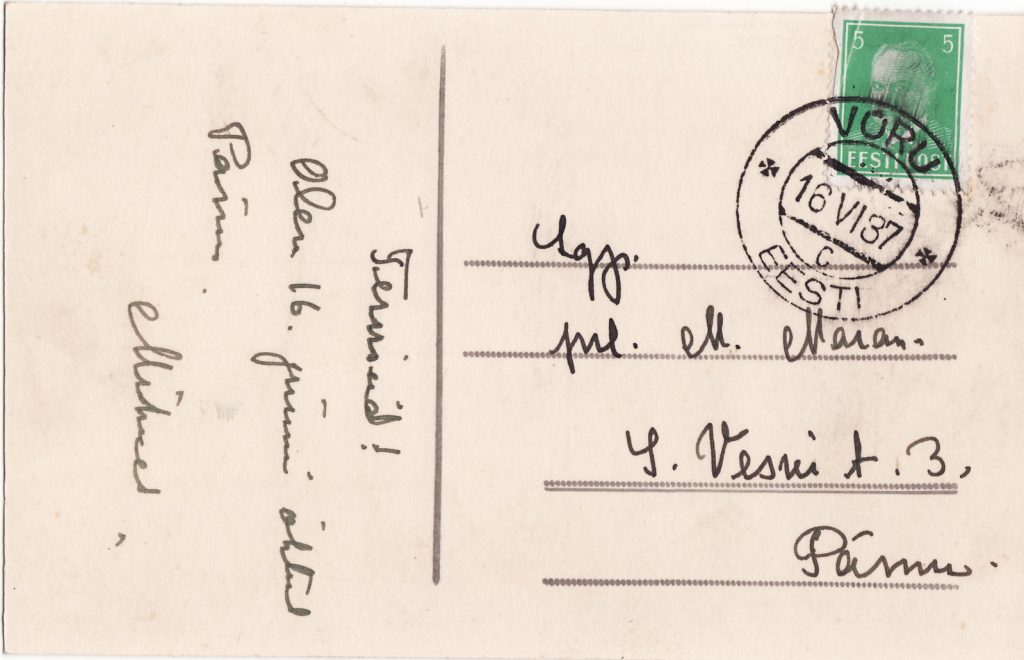 Tervisid!
Olen 16. juuni õhtul
Pärnu.
Mihkel
5 5
EESTI POST
VÕRU
16 VI 37
C
EESTI
Lgp.
prl. M. Maran.
S. Vesiii t. 3.
Pärnu.